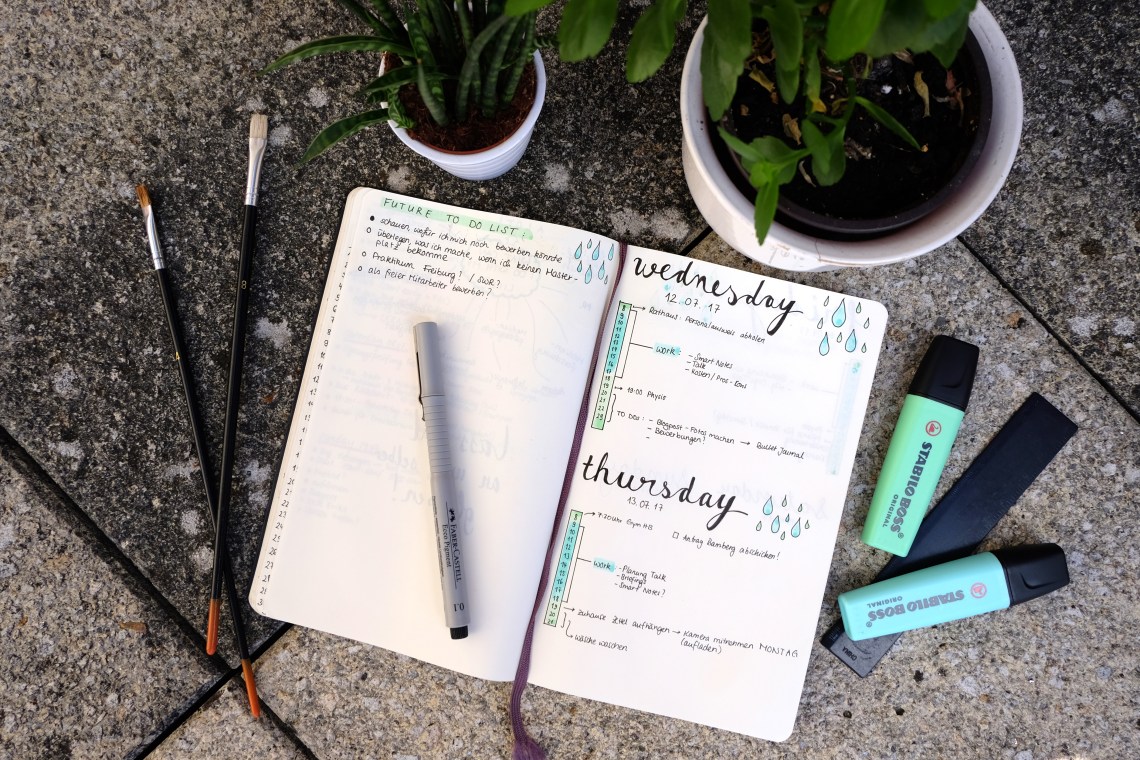 FUTURE TO DO LIST:
schauen, wofür ich mich noch bewerben könnte
überlegen, was ich mache, wenn ich keinen Master-
platz bekomme
Praktikum Freiburg? / SWR?
als freier Mitarbeiter bewerben?
wednesday
12.07.17
Rathaus: Personalausweis abholen
work:
- Smart Notes
- Talk
- Kosten / Pros-Cons
19:00 Physio
TO DOs:
- Blogpost-Fotos machen → Bullet Journal
- Bewerbungen?
-
thursday
13.07.17
7:20 Uhr Gym HB
Antrag Bamberg abschicken!
work:
- Planung Talk
- Briefings
- Smart Notes?
zuhause Zettel aufhängen → Kamera mitnehmen MONTAG
(aufladen)
wäsche waschen
FABER-CASTELL
Ecco Pigment
1.0
8
STABILO BOSS
ORIGINAL
STABILO BOSS
ORIGINAL